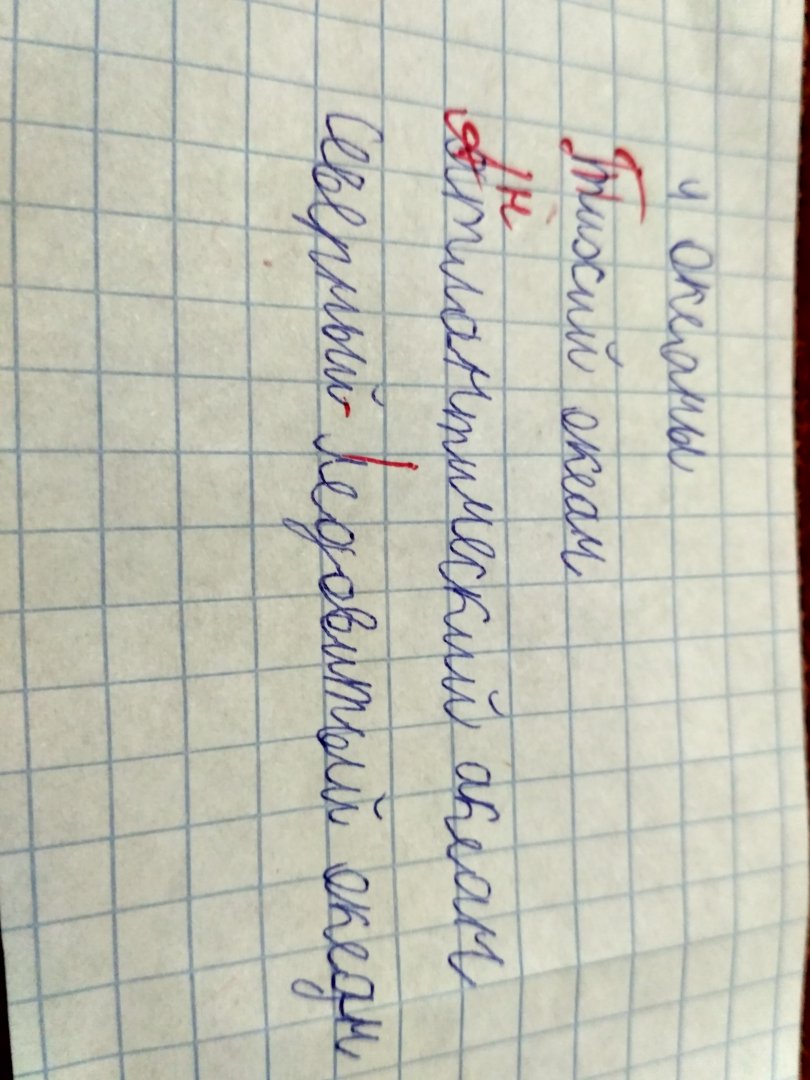 4 океаны
Тихий океан
Атлантический акеан
Северный-Ледовитый океан